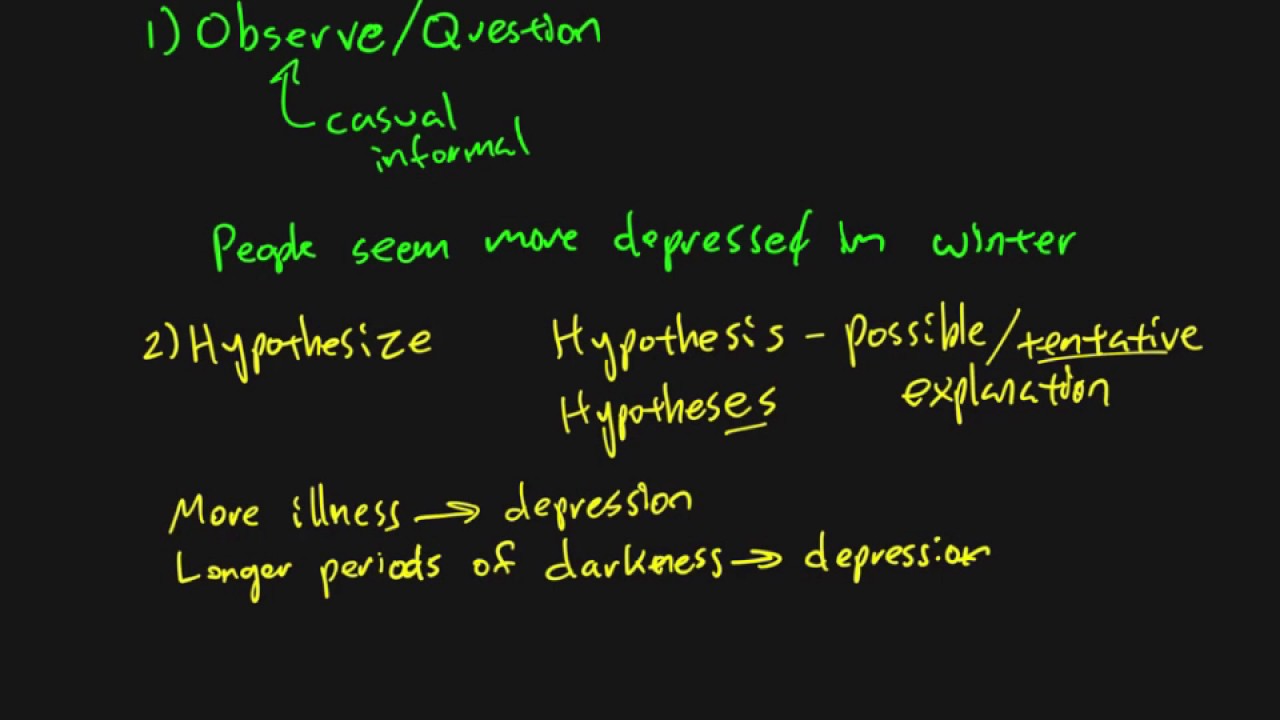 1) Observe/Question
casual
informal
People seem more depressed in winter
2) Hypothesize Hypothesis - possible/tentative
Hypotheses explanation
More illness → depression
Longer periods of darkness → depression